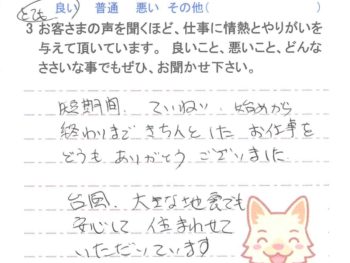 とても 良い 普通 悪い その他(
3 お客さまの声を聞くほど、仕事に情熱とやりがいを
与えて頂いています。 良いこと、悪いこと、どんな
ささいな事でもぜひ、お聞かせ下さい。
短期間、ていねい、始めから
終わりまできちんとした お仕事を
どうも ありがとう ございました
台風、大きな地震でも
安心して 住まわせて
いただいています